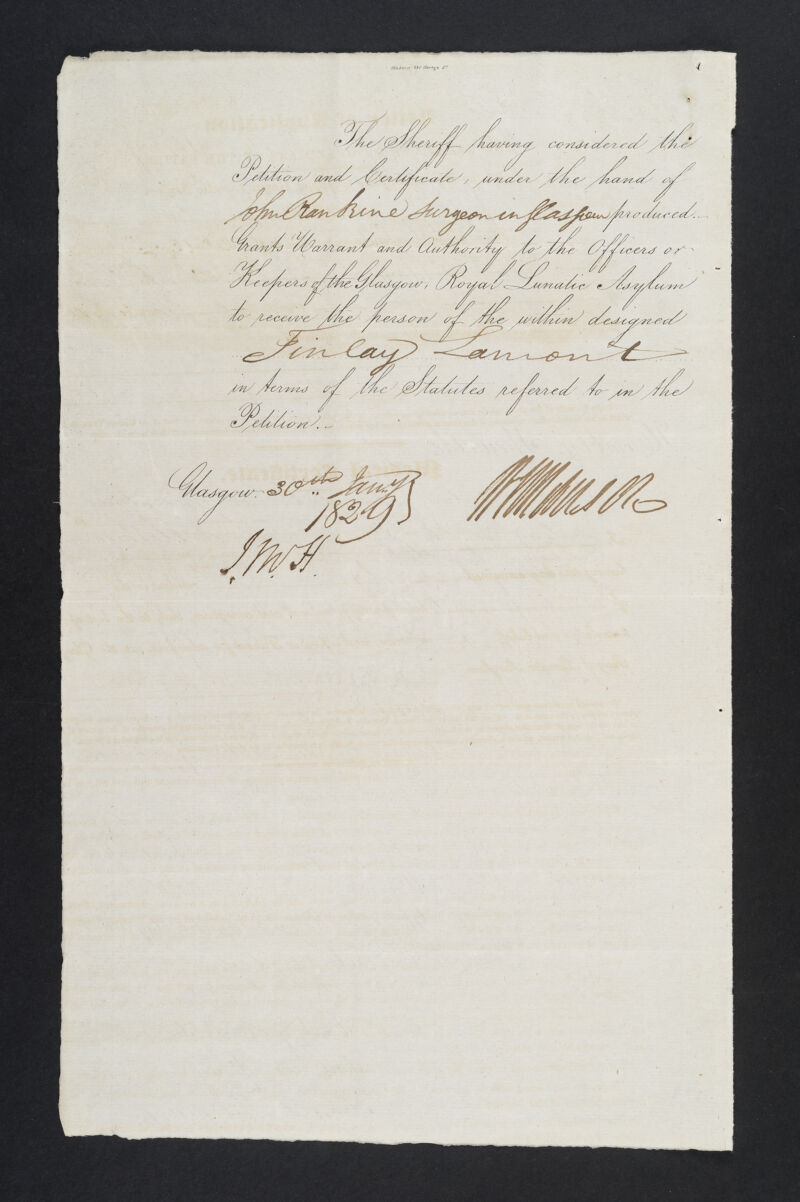 The Sheriff having considered the
Petition and Certificate, under the hand of
John Rankine Surgeon in Glasgow produced
Grants Warrant and Authority to the Officers or
Keepers of the Glasgow, Royal Lunatic Asylum
to receive the person of the within designed
Finlay Lamont
in terms of the Statutes referred to in the
Petition.
Glasgow. 30th Jany
1829
J. McH.